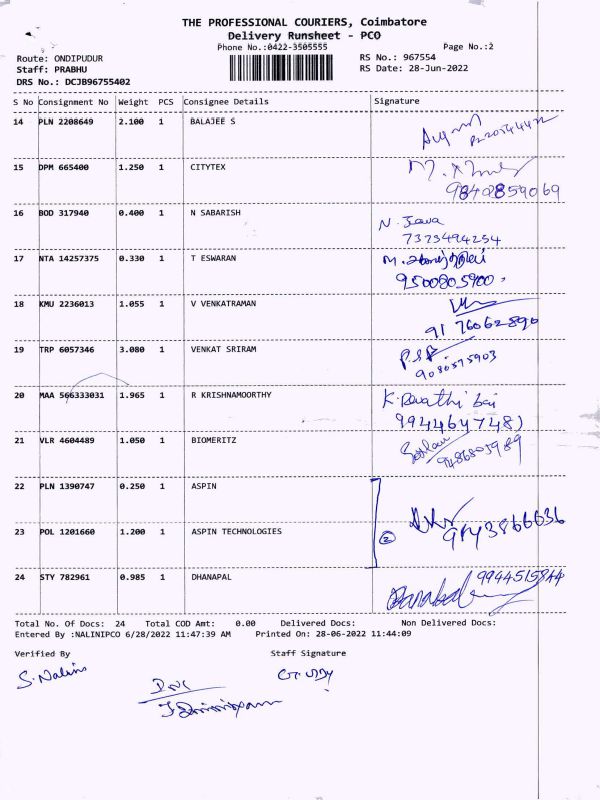 THE PROFESSIONAL COURIERS, Coimbatore
Delivery Runsheet - PCO
Phone No.:0422-3505555 Page No.:2
Route: ONDIPUDUR RS No.: 967554
Staff: PRABHU RS Date: 28-Jun-2022
DRS No.: DCJB96755402
S No Consignment No Weight PCS Consignee Details Signature
14 PLN 2208649 2.100 1 BALAJEE S
15 DPM 665400 1.250 1 CITYTEX
9842859069
16 BOD 317940 0.400 1 N SABARISH
N. Jaya
7373494254
17 NTA 14257375 0.330 1 T ESWARAN
9500805900
18 KMU 2236013 1.055 1 V VENKATRAMAN
91 76062890
19 TRP 6057346 3.080 1 VENKAT SRIRAM
9080575903
20 MAA 566333031 1.965 1 R KRISHNAMOORTHY
K. Revathi bai
9944647481
21 VLR 4604489 1.050 1 BIOMERITZ
9486805989
22 PLN 1390747 0.250 1 ASPIN
23 POL 1201660 1.200 1 ASPIN TECHNOLOGIES
2
24 STY 782961 0.985 1 DHANAPAL
9944515844
Total No. Of Docs: 24 Total COD Amt: 0.00 Delivered Docs: Non Delivered Docs:
Entered By :NALINIPCO 6/28/2022 11:47:39 AM Printed On: 28-06-2022 11:44:09
Verified By Staff Signature
S. Nalini